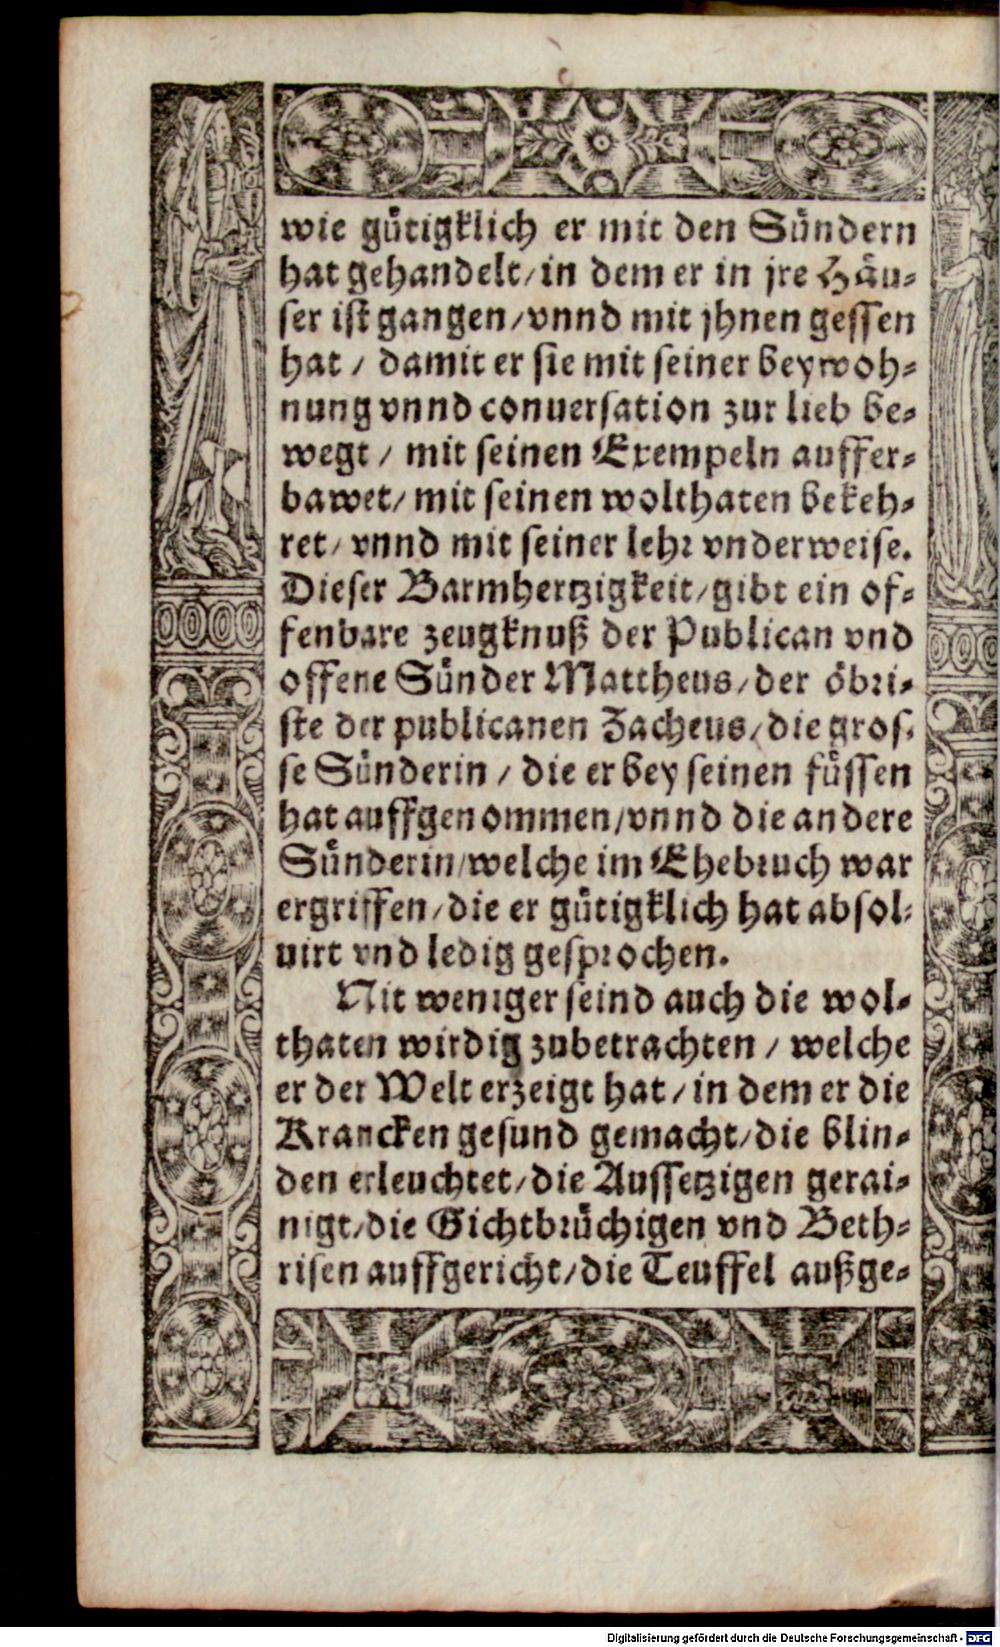 wie gütigklich er mit den Sündern
hat gehandelt/ in dem er in jre Häu-
ser ist gangen/ vnnd mit jhnen gessen
hat / damit er sie mit seiner beywoh-
nung vnnd conuersation zur lieb be-
wegt / mit seinen Exempeln auffer-
bawet/ mit seinen wolthaten bekeh-
ret/ vnnd mit seiner lehr vnderweise.
Dieser Barmhertzigkeit/ gibt ein of-
fenbare zeugknuß der Publican vnd
offene Sünder Mattheus/ der öbri-
ste der publicanen Zacheus/ die gros-
se Sünderin / die er bey seinen füssen
hat auffgenommen/ vnnd die andere
Sünderin/ welche im Ehebruch war
ergriffen/ die er gütigklich hat absol-
uirt vnd ledig gesprochen.
Nit weniger seind auch die wol-
thaten wirdig zubetrachten / welche
er der Welt erzeigt hat / in dem er die
Krancken gesund gemacht/ die blin-
den erleuchtet/ die Aussetzigen gerai-
nigt/ die Gichtbrüchigen vnd Beth-
risen auffgericht/ die Teuffel außge-
Digitalisierung gefördert durch die Deutsche Forschungsgemeinschaft - DFG